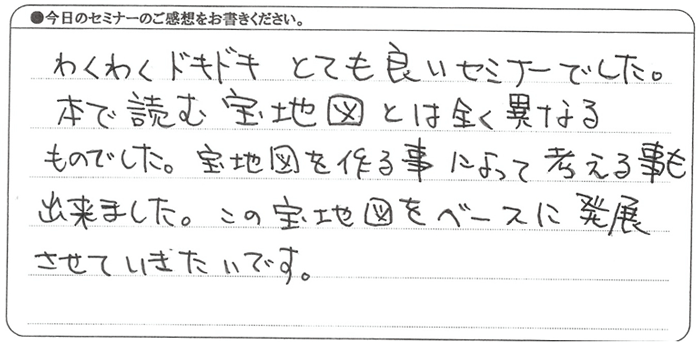 ●今日のセミナーのご感想をお書きください。
わくわくドキドキ とても良いセミナーでした。
本で読む宝地図とは全く異なる
ものでした。宝地図を作る事によって考える事も
出来ました。この宝地図をベースに発展
させていきたいです。